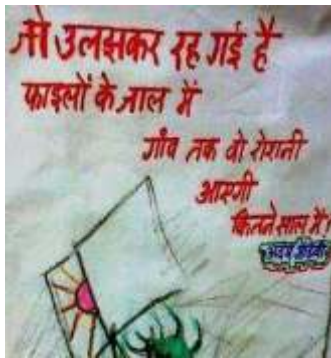 जो उलझकर रह गई है
फाइलों के जाल में
गाँव तक वो रोशनी
आएगी
कितने साल में!
अदम गोंडवी